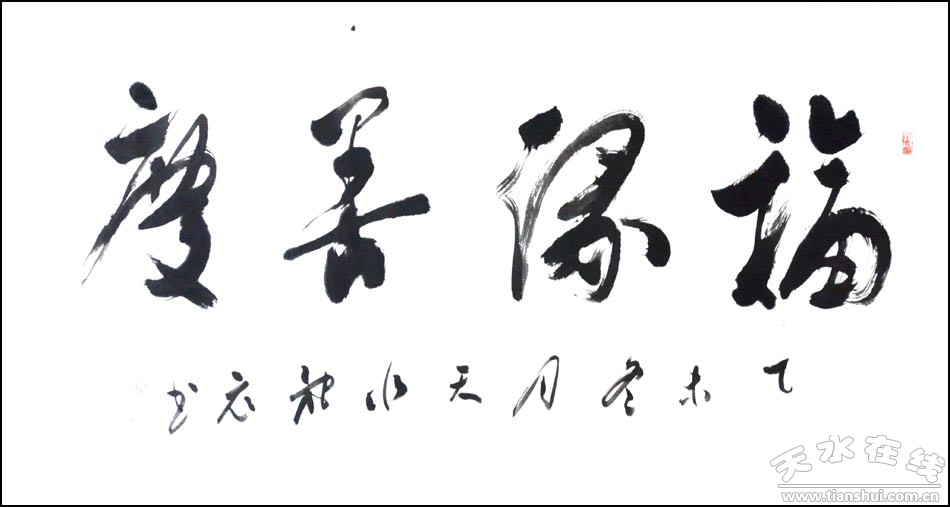 福緣善慶
乙未冬月天水书
天水在线
www.tianshui.com.cn